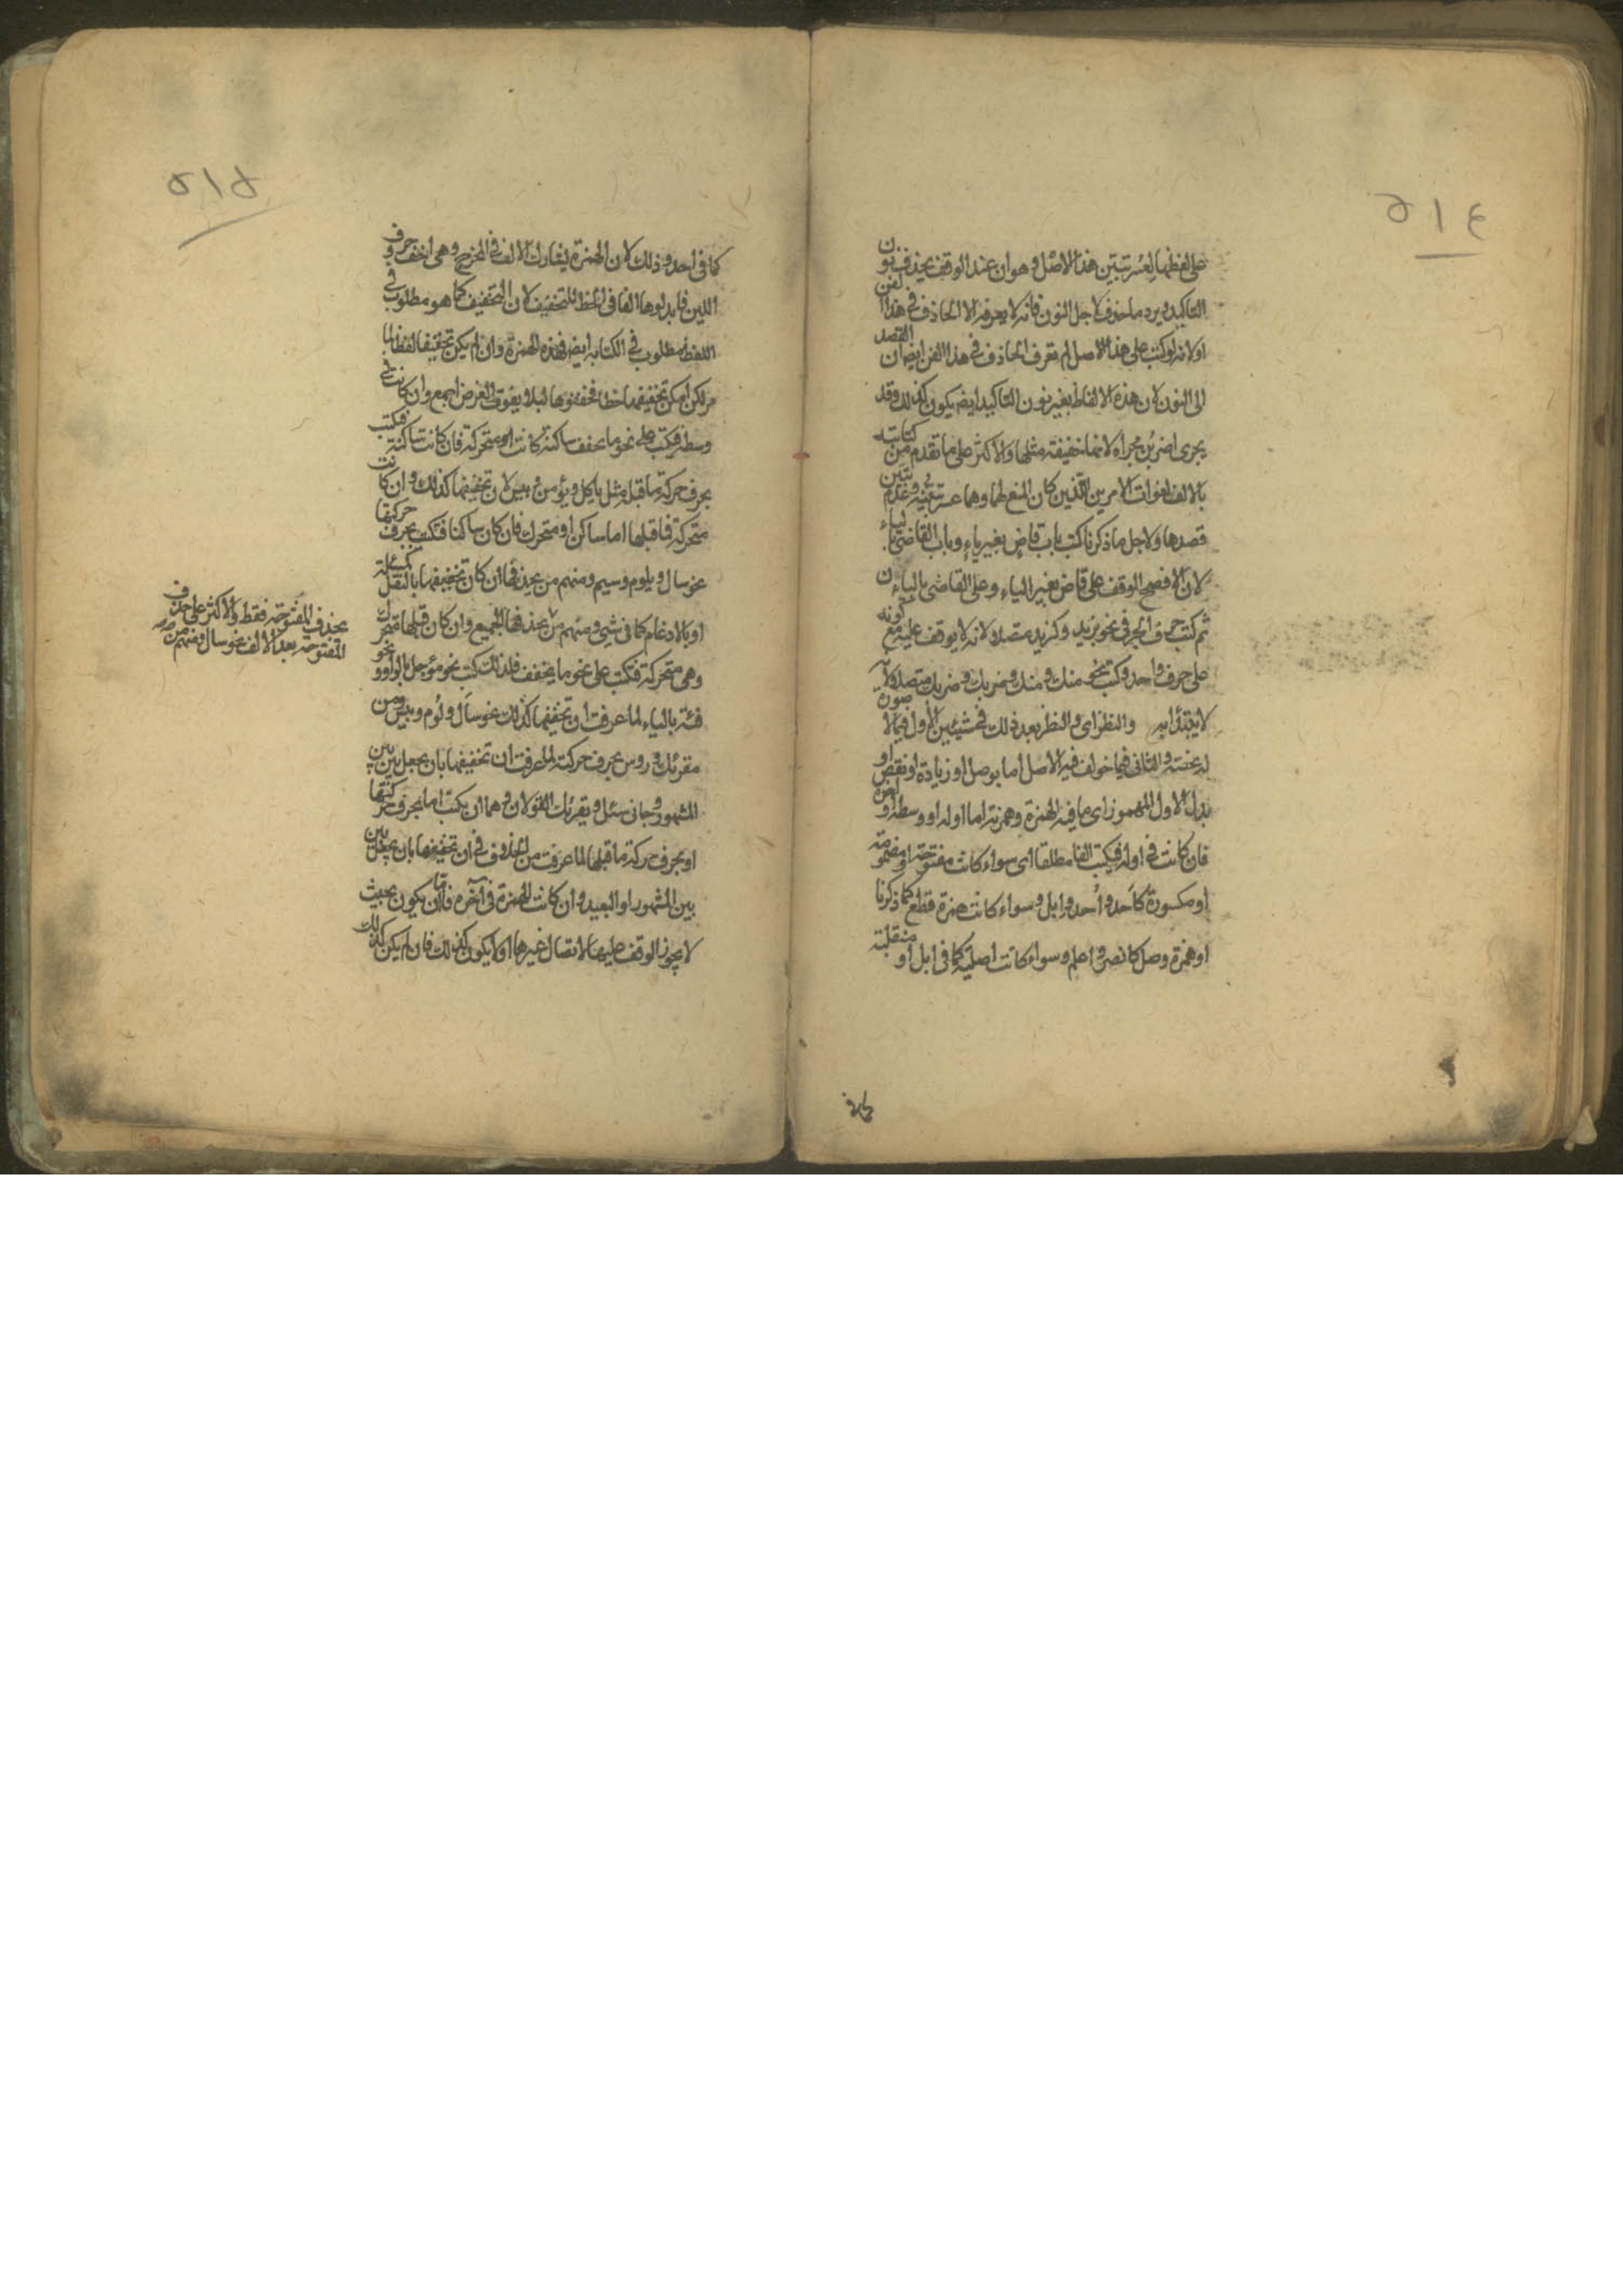 ٥١٤
على لفظها لعسر تبين هذا الاصل وهو ان عند الوقف يحذف نون
التاكيد ويرد ما حذف لاجل النون فانه لا يعرفه الا الحاذف في هذا الفن
او لانه لو كتب على هذا الاصل لم تعرف الحاذف في هذا الفن ايض ان القصد
الى النون لان هذه الالفاظ بغير نون التاكيد ايض يكون كذلك وقد
يجرى اضربن مجراه لانها خفيفة مثلها والاكثر على ما تقدم من كتابته
بالالف لفوات الامرين اللذين كان المنع لهما وهما عسر تبينه وعدم تبين
قصدها ولاجل ما ذكرنا كتب باب قاض بغير ياء وباب القاضي بالياء
لان الافصح الوقف على قاض بغير الياء وعلى القاضي بالياء
ثم كتب حرف الجر في نحو بزيد وكزيد متصلا لانه لا يوقف عليه مع كونه
على حرف واحد وكتب نحو منك و منك وضربك وضربك متصلا لانه
لا يبتدأ به والنظر اى و النظر بعد ذلك في شيئين الاول فيما لا صورة
له تخصه والثاني فيما خولف فيه الاصل اما بوصل او زيادة او نقص او
بدل الاول المهموز اى ما فيه الهمزة وهمزته اما اوله او وسطه او آخره
فان كانت في اوله فيكتب الفا مطلقا اى سواء كانت مفتوحة او مضمومة
او مكسورة كاَحد واُحد وابل وسواء كانت همزة قطع كما ذكرنا
او همزة وصل كانصر واعلم وسواء كانت اصلية كما في ابل او منقلبة
٥١٥
كما في احد وذلك لان الهمزة يشارك الالف في المخرج وهي اخف حروف
اللين فابدلوها الفا في الخط للتخفيف لان التخفيف كما هو مطلوب في
اللفظ مطلوب في الكتابة ايض فهذه الهمزة وان لم يكن تخفيفها لفظا
لكن امكن تخفيفها خطا فخففوها لئلا يفوت الغرض اجمع وان كانت في
وسطه فكتب على نحو ما يخفف ساكنة كانت او متحركة فان كانت ساكنة فكتب
بحرف حركة ما قبله مثل ياكل ويؤمن وبيس لان تخفيفها كذلك وان كانت
متحركة فما قبلها اما ساكن او متحرك فان كان ساكنا فتكتب بحرف حركتها
نحو يسال ويلوم ويسيم ومنهم من يحذفها ان كان تخفيفها بالنقل كمسئلة
او بالادغام كما في شيئ ومنهم من يحذفها الجميع وان كان قبلها متحرك
وهي متحركة فتكتب على نحو ما يخفف فلذلك كتب نحو مؤجل بالواو ونحو
فئة بالياء لما عرفت ان تخفيفها كذلك نحو سأل ولؤم وبيس ومن
مقرئك وروس بحرف حركته لما عرفت ان تخفيفها بان يجعل بين بين
المشهور وجا في سئل ويقرئك القولان وهما ان يكتب اما بحرف حركتها
او بحرف حركة ما قبلها لما عرفت من في ان تخفيفها بان يجعل بين
بين المشهور او البعيد وان كانت الهمزة في آخره فاما ان يكون بحيث
لا يجوز الوقف عليها لاتصال غيرها او لا يكون كذلك فان لم يكن كذلك
يحذف المفتوحة فقط والاكثر على حذف
المفتوحة بعد الالف نحو سال ومنهم من